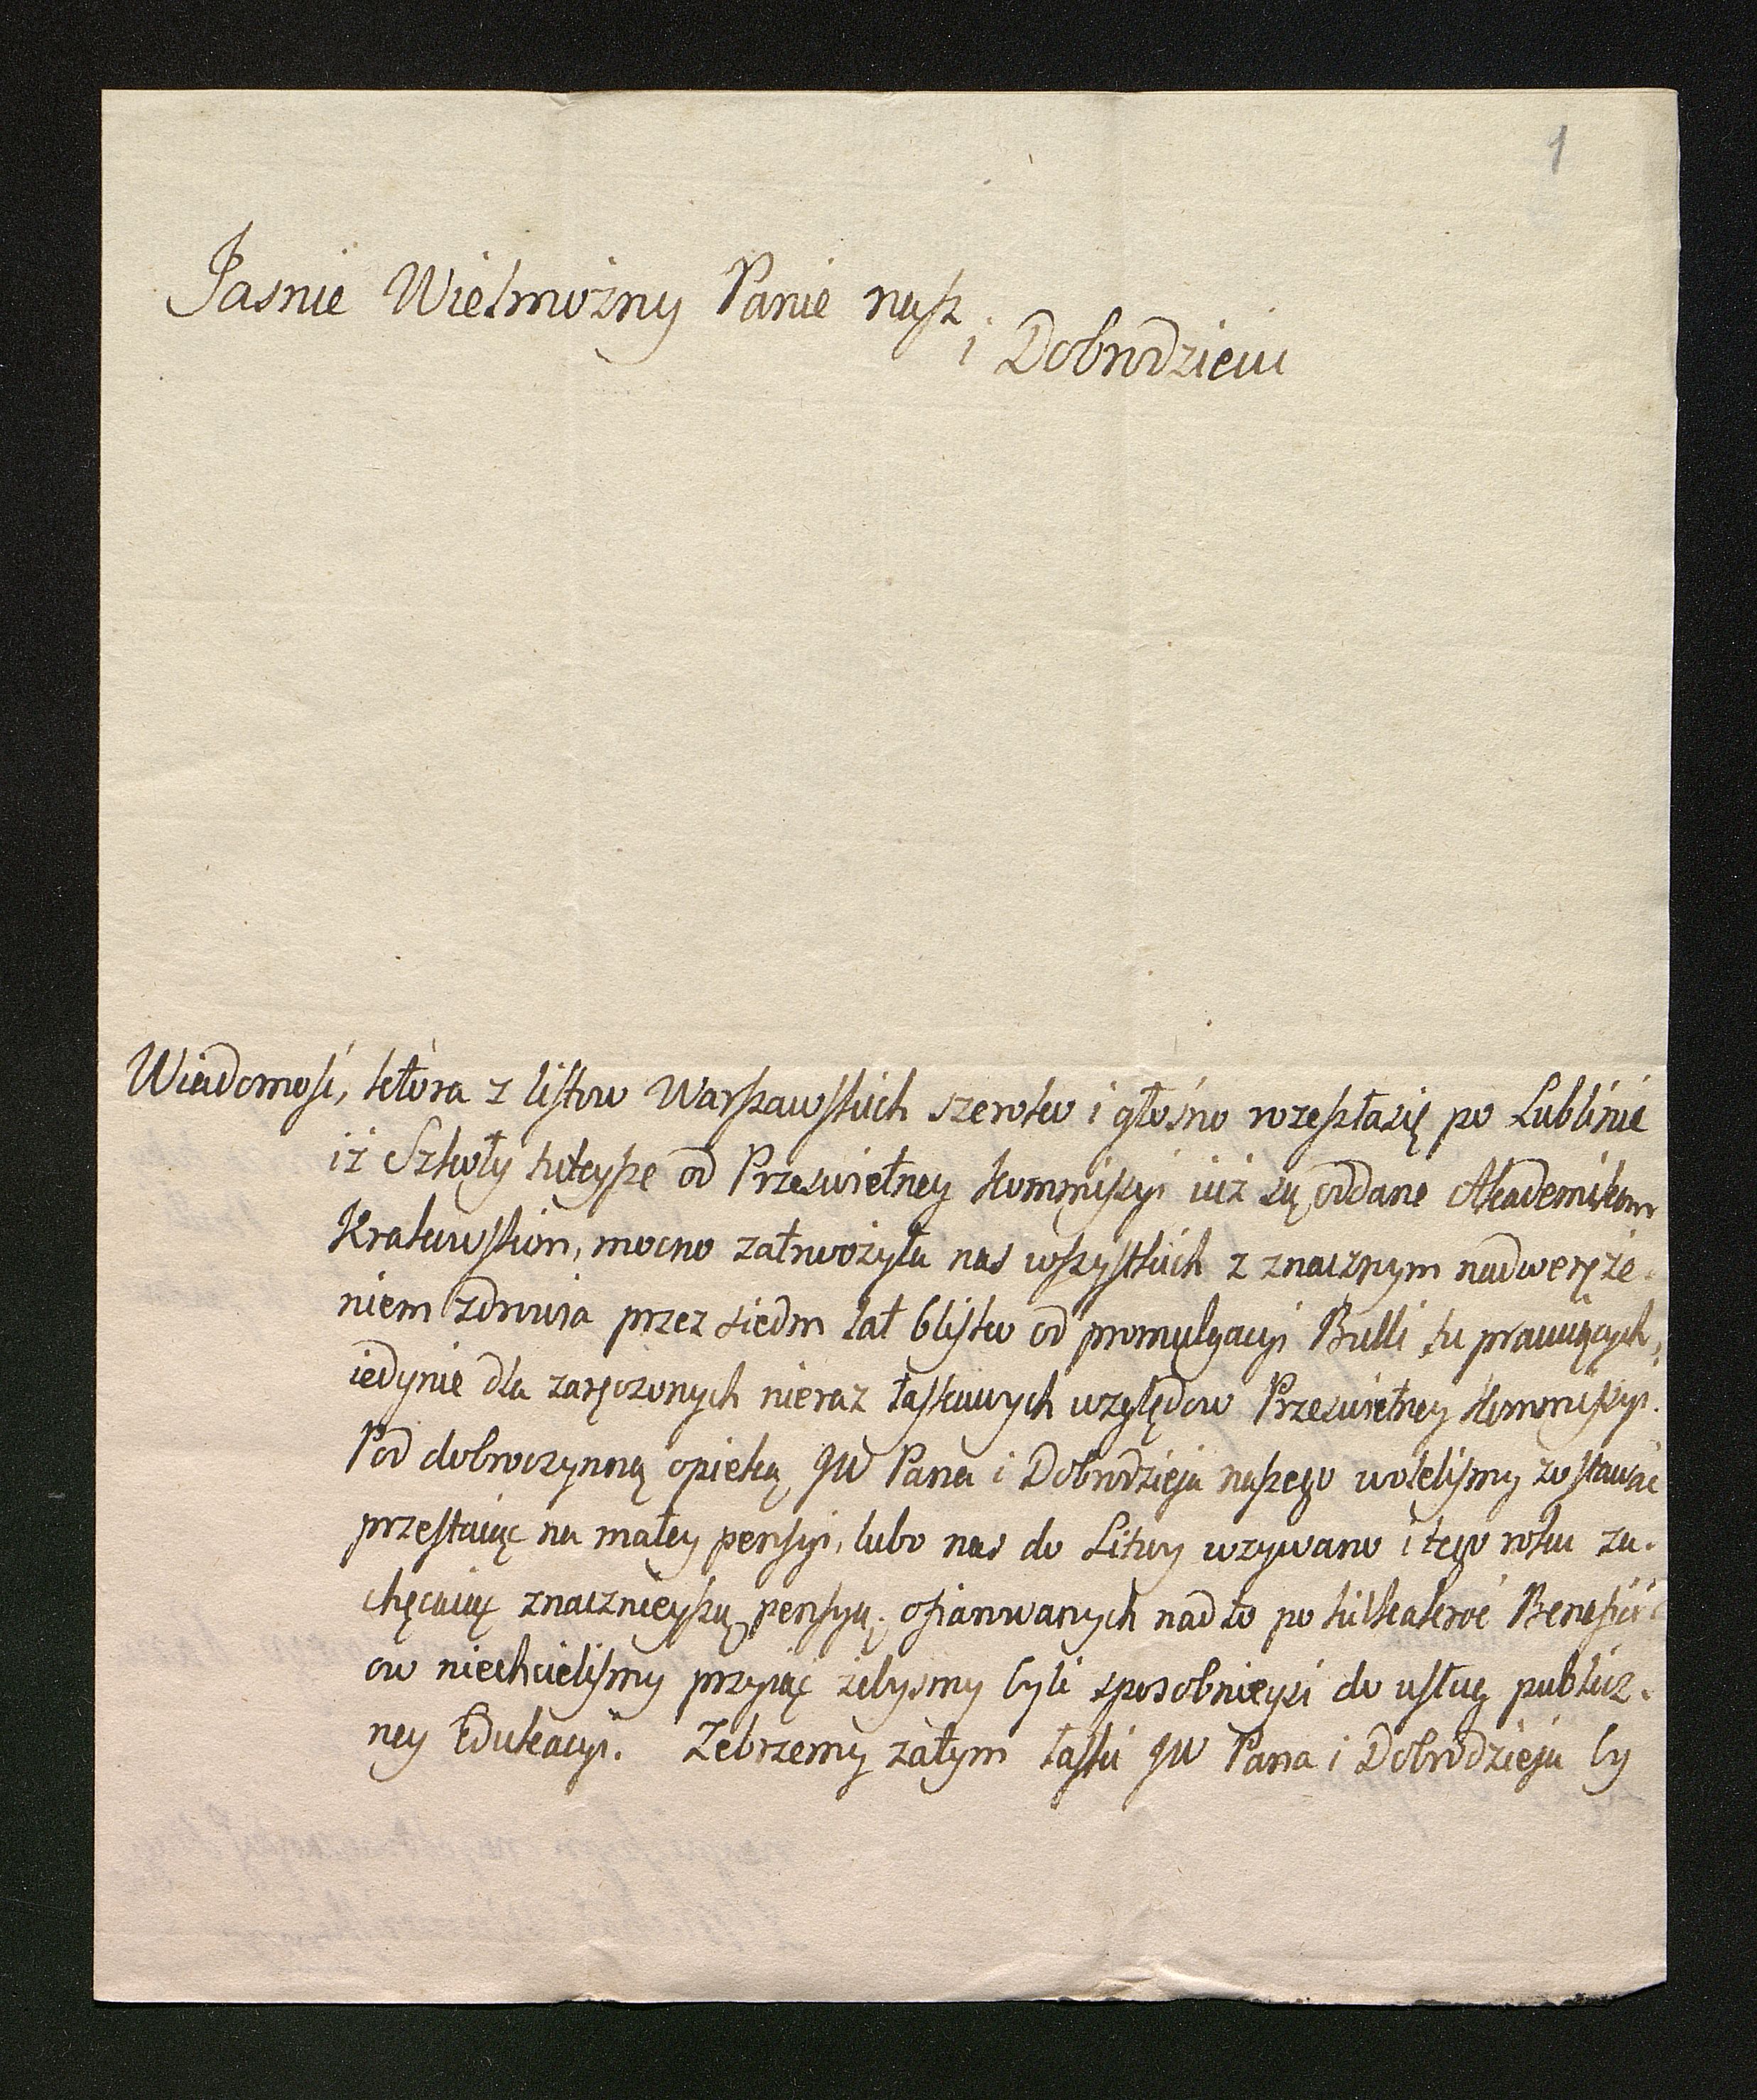 1
Jasnie Wielmożny Panie nasz
i Dobrodzieiu
Wiadomość, ktora z listow Warszawskich szeroko i głośno rozeszłasię po Lublinie
iż Szkoły tuteysze od Prześwietney Kommissyi iuż są oddane Akademikom
Krakowskim, mocno zatrwożyła nas wszystkich z znacznym nadweręże-
niem zdrowia przez siedm lat blisko od promulgacyi Bulli tu pracuiących,
iedynie dla zaręczonych nieraz łaskawych względow Prześwietney Kommissyi.
Pod dobroczynną opieką JW Pana i Dobrodzieja naszego woleliśmy zostawać
przestaiąc na małey pensyi, lubo nas do Litwy wzywano i tego roku za-
chęcaiąc znacznieyszą pensyą; ofiarowanych nad to po kilkakroć Beneficy-
ow niechcieliśmy przyiąć żebysmy byli sposobnieysi do usług publicz-
ney Edukacyi. Żebrzemy zatym łaski JW Pana i Dobrodzieja by